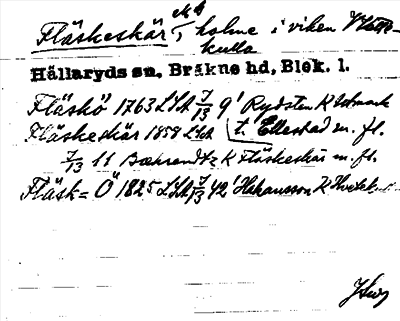 Fläskeskär, holme i viken
kulla
Hällaryds sn, Bräkne hd, Blek. l.
Fläskö 1763 LSA 7/13 9' Rydsten K
Fläskeskär 1858 LSA t. Ellestad m. fl.
7/13 11 K Fläskeskär m. fl.
Fläsk= Ö 1825 LSA 7/13 42' Håkansson K